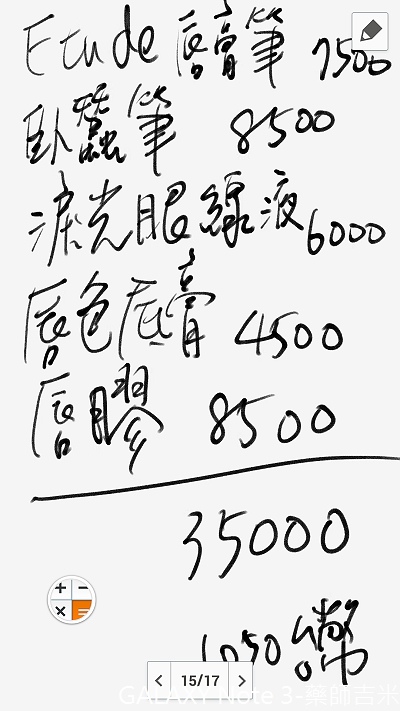 Etude 唇膏筆 7500
臥蠶筆 8500
淚光眼線液 6000
唇色底膏 4500
唇膠 8500
35000
1050台幣
15/17
GALAXY Note 3-藥師吉米